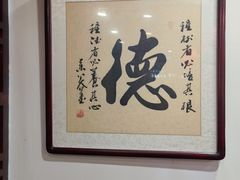 種树者必培其根
德
種德者必養其心